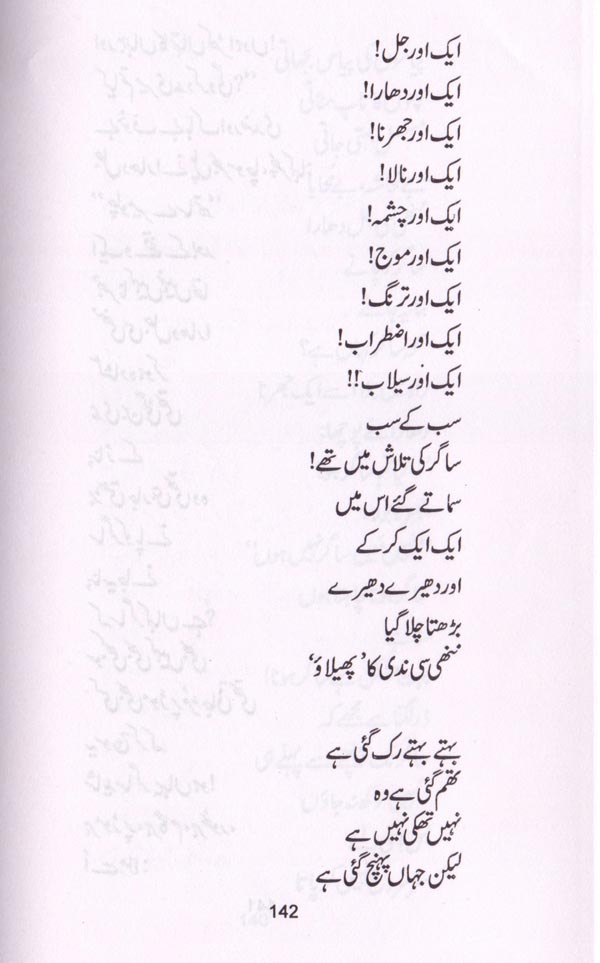 ایک اور جل!
ایک اور دھارا!
ایک اور جھرنا!
ایک اور نالا!
ایک اور چشمہ!
ایک اور موج!
ایک اور ترنگ!
ایک اور اضطراب!
ایک اور سیلاب!!
سب کے سب
ساگر کی تلاش میں تھے!
سماتے گئے اس میں
ایک ایک کر کے
اور دھیرے دھیرے
بڑھتا چلا گیا
ننھی سی ندی کا ’پھیلاؤ‘
بہتے بہتے رک گئی ہے
تھم گئی ہے وہ
نہیں تھکی نہیں ہے
لیکن جہاں پہنچ گئی ہے
142